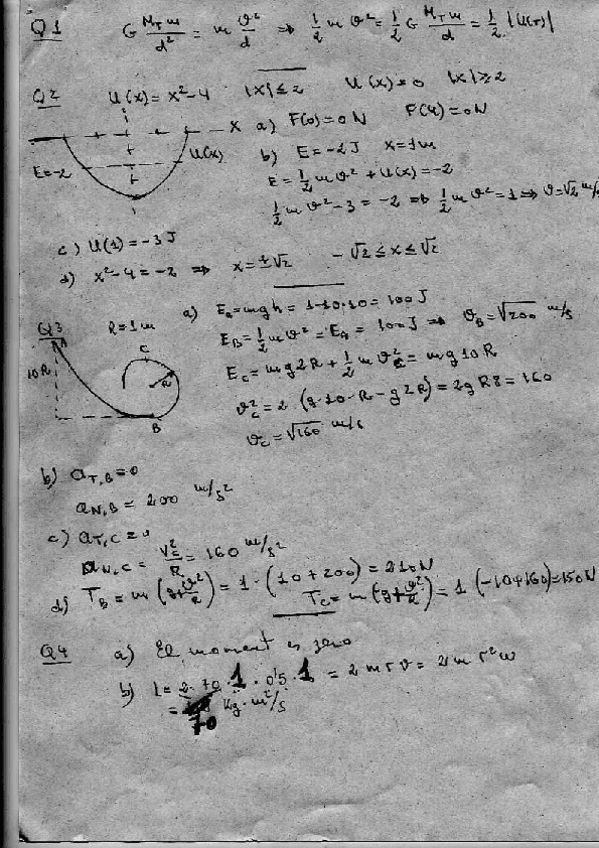 Q1 G M_T m / d² = m v²/d ⇒ ½ m v² = ½ G M_T m / d = ½ |U(r)|
Q2 U(x) = x²-4 |x| ≤ 2 U(x) = 0 |x| ≥ 2
x a) F(0) = 0 N F(4) = 0 N
U(x)
E=-2 b) E = -2 J x = 1 m
E = ½ m v² + U(x) = -2
½ m v² - 3 = -2 ⇒ ½ m v² = 1 ⇒ v = √2 m/s
c) U(1) = -3 J
d) x²-4 = -2 ⇒ x = ±√2 -√2 ≤ x ≤ √2
Q3 R = 1 m a) E_A = mgh = 1·10·10 = 100 J
A 10R C R B
E_B = ½ m v² = E_A = 100 J ⇒ v_B = √200 m/s
E_C = mg2R + ½ m v_C² = mg10R
v_C² = 2 (g·10·R - g2R) = 2gR8 = 160
v_C = √160 m/s
b) a_T,B = 0
a_N,B = 200 m/s²
c) a_T,C = 0
a_N,C = v_C²/R = 160 m/s²
d) T_B = m (g + v²/R) = 1·(10+200) = 210 N
T_C = m (g + v²/R) = 1 (-10+160) = 150 N
Q4 a) El moment es zero
b) L = 2·70·1·0'5·1 = 2 m r v = 2 m r² w
= 70 Kg·m²/s